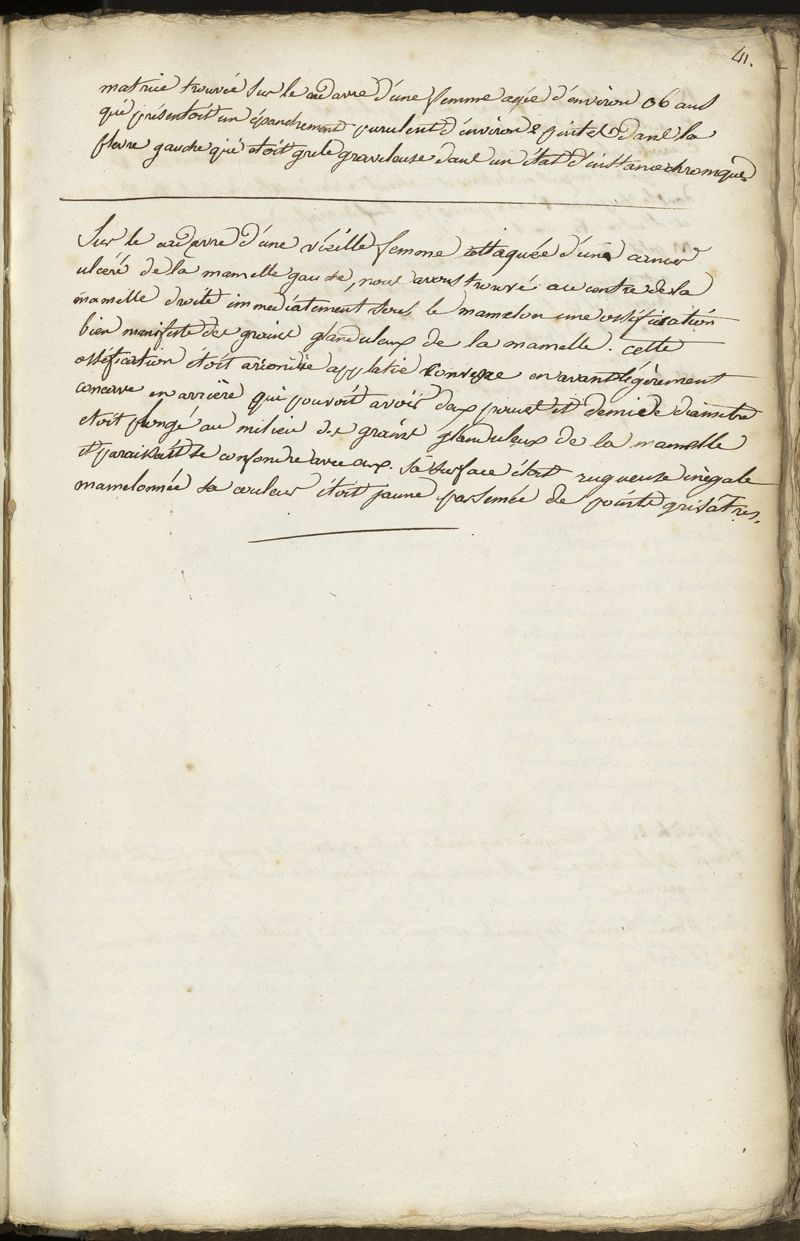 41.
matrice trouvée sur le cadavre d'une femme agée d'environ 06 ans
qui présentoit un épanchement purulent d'environ 2 pintes dans la
plevre gauche qui etoit graveleuse dans un état chronique
Sur le cadavre d'une vieille femme attaquée d'un cancer
ulcéré de la mamelle gauche, nous avons trouvé au centre de la
mamelle droite immediatement sous le mamelon une ossification
bien manifeste des grains glanduleux de la mamelle. cette
ossification etoit arrondie applatie convexe en avant légérement
concave en arrière qui pouvoit avoir deux pouces et demie de diametre
etoit plongé au milieu des grains glanduleux de la mamelle
et paraissait se confondre avec eux. sa surface étoit rugueuse inégale
mamelonnée sa couleur étoit jaune parsemée de points grisâtres.